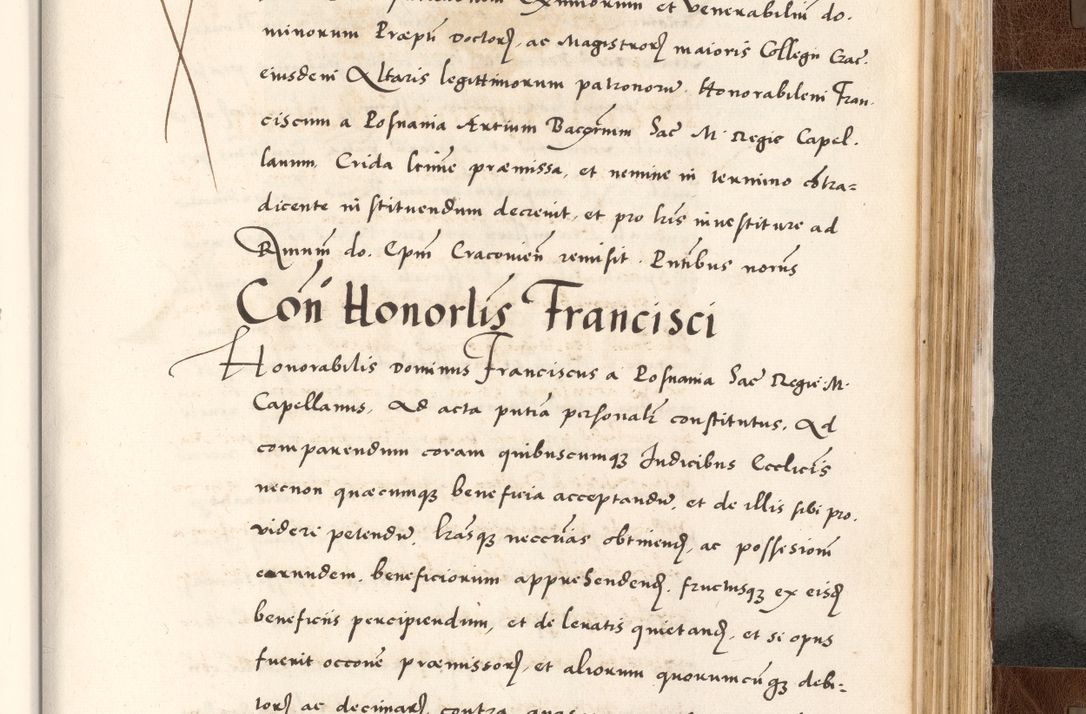 et venerabiliū do.
minorum Præpti Doctorꝝ, ac Magistrorꝝ maioris Collegii Crac̄.
eiusdem Altaris legittimorum patronorū. Honorabilem Fran.
ciscum a Posnania Artium Baccm̄ Sac̄ M. Regiæ Capel.
lanum, Crida lrīme præmissa, et nemine in termino cōtra=
dicente instituendum decrevit, et pro lrīs investiture ad
Rmnum do. Epm̄ Cracovień remisit. Pntībus
Con Honorlis Francisci
Honorabilis Dominus Franciscus a Posnania Sac̄ Regiæ M.
Capellanus, Ad acta pntia personalr constitutus, Ad
comparendum coram quibuscumqꝫ Iudicibus Ecclicis
necnon quæcumqꝫ beneficia acceptandū, et de illis sibi pro.
videri petendū, lrasqꝫ neccrias obtinendꝝ, ac possesionē
earundem, beneficiorum apprehendendꝝ, fructusqꝫ ex eisdꝝ
beneficiis percipiendum, et de levatis quietandꝝ, et si opus
fuerit occone præmissorꝝ, et aliorum quorumcūqꝫ debi=
torꝝ ac decimarꝝ, contra